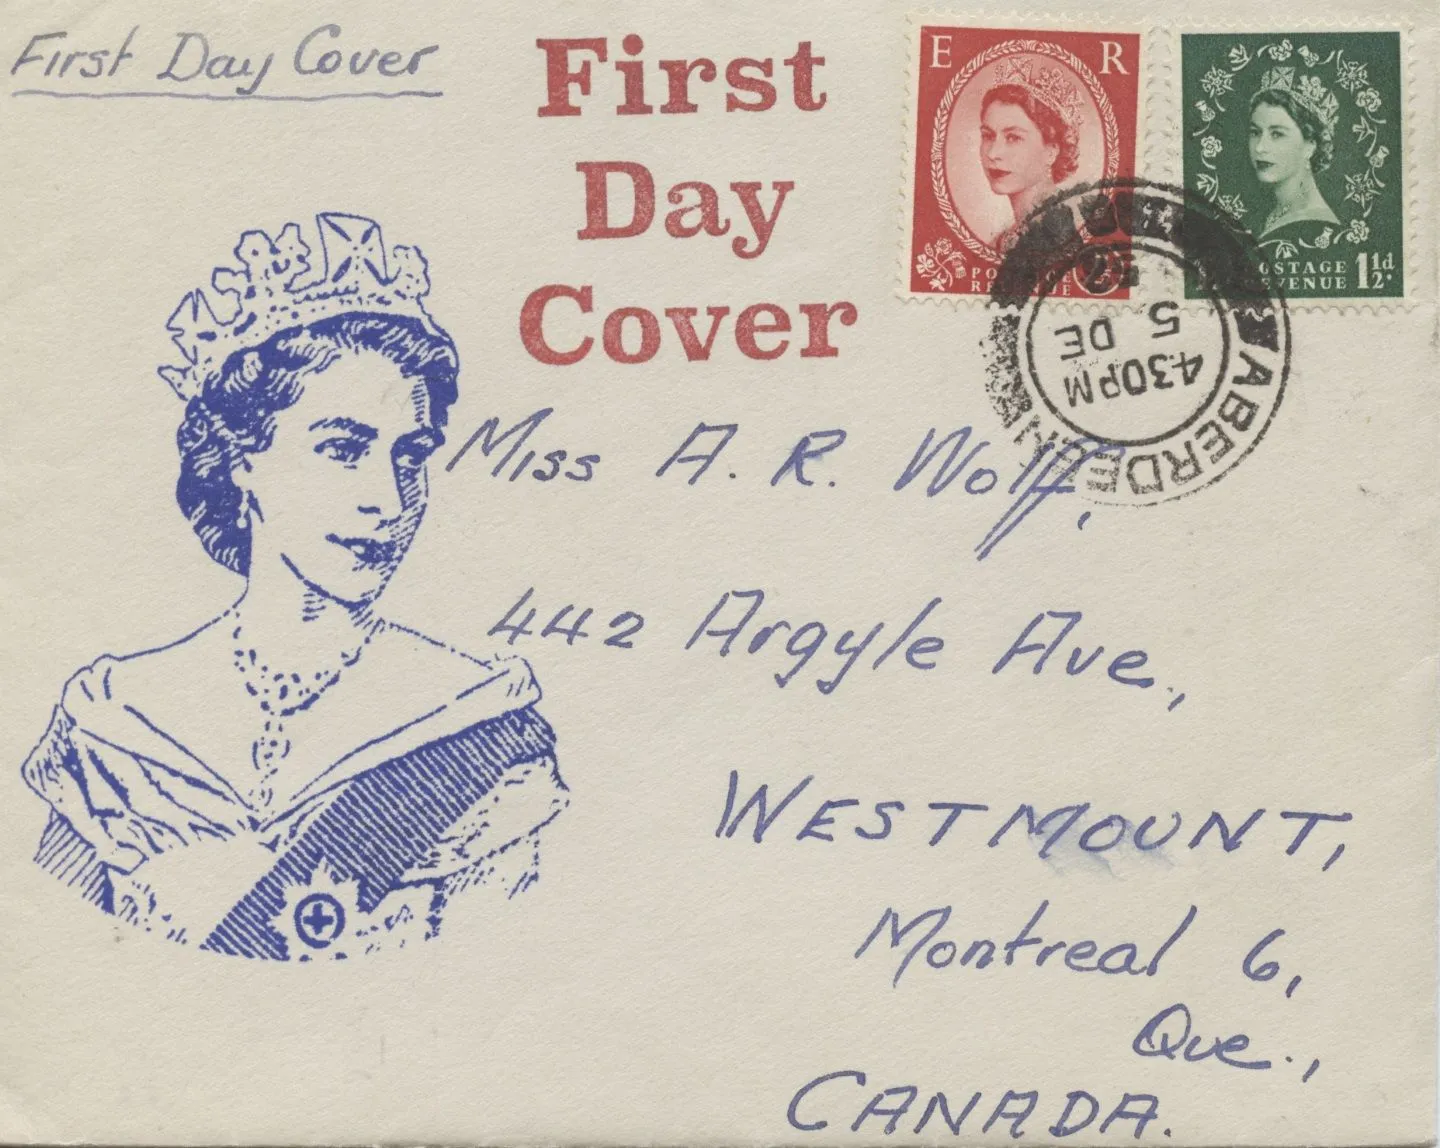 First Day Cover
First
Day
Cover
E R
POSTAGE
REVENUE
POSTAGE
REVENUE
1½d.
ABERDEEN
4 30PM
5 DE
52
Miss A. R. Wolff,
442 Argyle Ave.,
WESTMOUNT,
Montreal 6,
Que.,
CANADA.